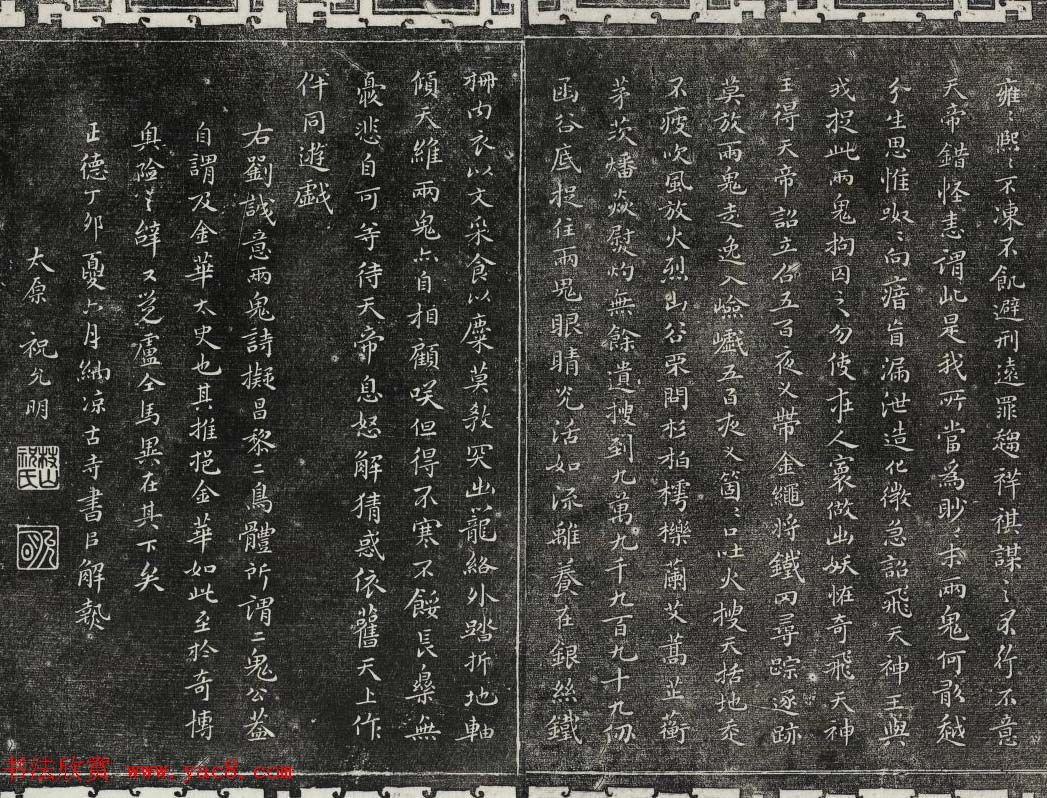 雍〻熙〻不凍不飢避刑遠罪趨祥祺謀之不行不意
天帝錯怪恚謂此是我所當為眇〻末兩鬼何敢越
分生思惟呶〻向瘖盲漏泄造化微急詔飛天神王與
我捉此兩鬼拘囚之勿使在人寰做出妖怪奇飛天神
王得天帝詔立召五百夜乂帶金繩將鐵网尋踪逐跡
莫放兩鬼走逸入嶮巇五百夜乂箇〻口吐火搜天括地走
不疲吹風放火烈山谷不問杉柏樗櫟蘭艾蒿芷蘅
茅茨燔焱熨灼無餘遺搜到九萬九千九百九十九仞
函谷底捉住兩鬼眼睛光活如流離養在銀絲鐵
柵內衣以文采食以麋莫教突出籠絡外踏折地軸
傾天維兩鬼亦自相顧咲但得不寒不餒長樂無
憂悲自可等待天帝息怒解猜惑依舊天上作
伴同遊戲
右劉誠意兩鬼詩擬昌黎二鳥體所謂二鬼公蓋
自謂及金華太史也其推挹金華如此至於奇博
奧險
又覺盧仝馬異在其下矣
正德丁卯夏六月納凉古寺書㠯解熱
太原 祝允明
枝山
祝氏
明
书法欣赏 www.yac8.com